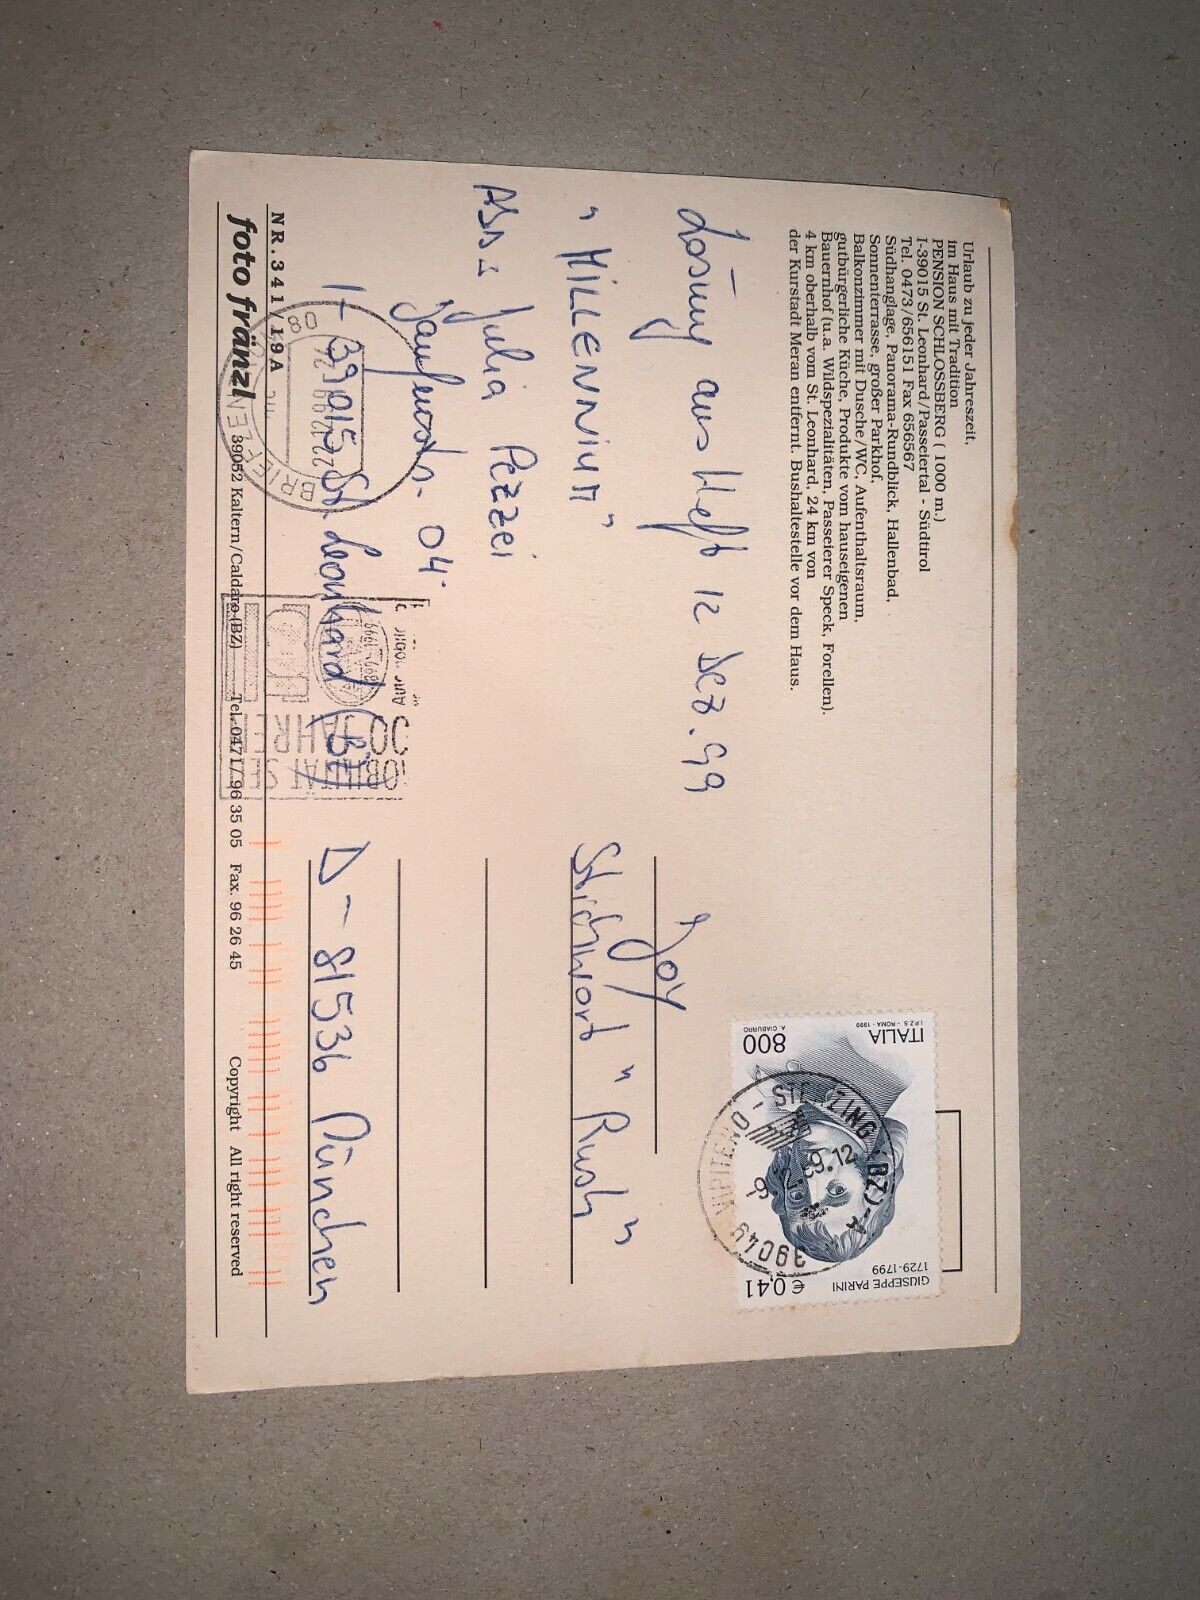 Urlaub zu jeder Jahreszeit,
im Haus mit Tradition
PENSION SCHLOSSBERG (1000 m.)
I-39015 St. Leonhard/Passeiertal - Südtirol
Tel. 0473/656151 Fax 656567
Südhanglage, Panorama-Rundblick, Hallenbad,
Sonnenterrasse, großer Parkhof,
Balkonzimmer mit Dusche/WC, Aufenthaltsraum,
gutbürgerliche Küche, Produkte vom hauseigenen
Bauernhof (u.a. Wildspezialitäten, Passeierer Speck, Forellen).
4 km oberhalb vom St. Leonhard, 24 km von
der Kurstadt Meran entfernt. Bushaltestelle vor dem Haus.
Lösung aus Heft 12 Dez. 99
"MILLENNIUM"
Abs: Julia Pezzei
04
I- 39015 St. Leonhard (BZ)
Joy
Stichwort "Rush"
D-81536 München
ITALIA
800
GIUSEPPE PARINI
1729-1799
€ 0,41
I.P.Z.S. - ROMA - 1999
A. CIABURRO
39049 VIPITENO - STERZING (BZ) - A
BRIEFZEN
22.12.99
08
JAHRE
NR.341/19A
foto fränzl
39052 Kaltern/Caldaro (BZ)
Tel. 0471/96 35 05
Fax. 96 26 45
Copyright
All right reserved